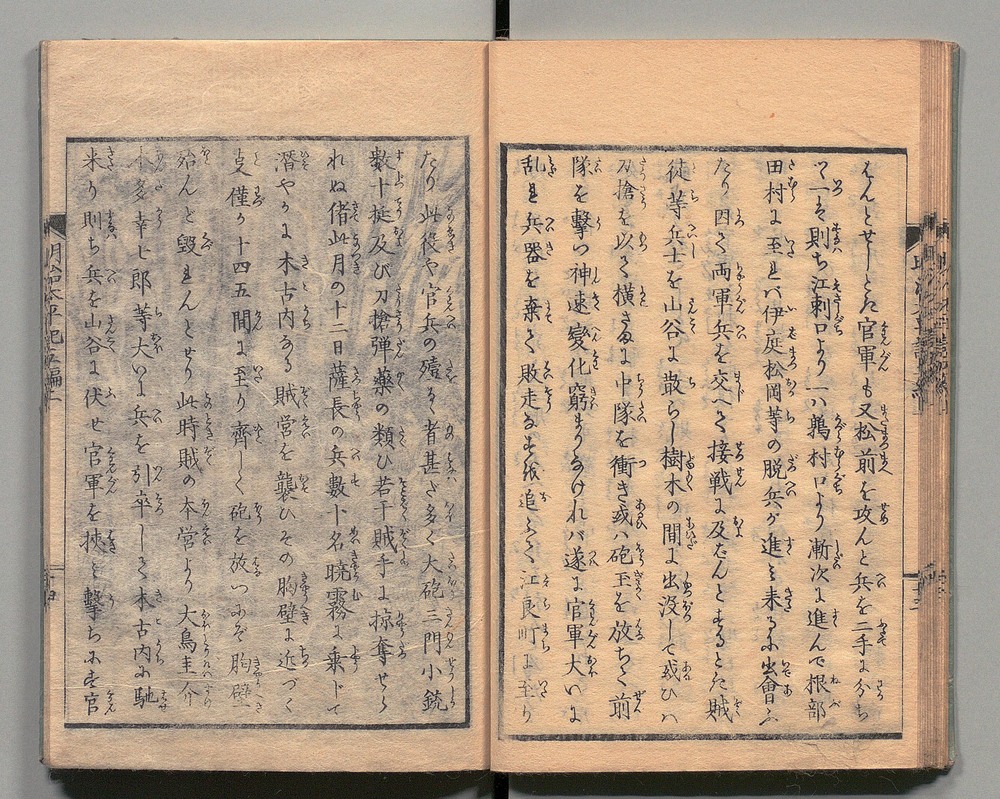 はんとせしとた官軍も又松前を攻んと兵を二手に分ち
つ一ハ則ち江刺口より一ハ鶉村口より漸次に進んで根部
田村に至れバ伊庭松岡等の脱兵が進み来るに出會ふ
たり因て両軍兵を交へて接戦に及だんとするとた賊
徒等兵士を山谷に散らし樹木の間に出没して或ひハ
刀搶を以て横さまに中隊を衝き或ハ砲玉を放ちて前
隊を撃つ神速變化窮まりなけれバ遂に官軍大いに
乱れ兵器を棄て敗走なすを追ふて江良町に至り
たり此役や官兵の殪るゝ者甚だ多く大砲三門小銃
數十挺及び刀搶弾藥の類ひ若干賊手に掠奪せら
れぬ偖此月の十二日薩長の兵數十名暁霧に乗じて
潜やかに木古内なる賊営を襲ひその胸壁に近づく
支僅か十四五間に至り齊しく砲を放つにぞ胸壁
殆んと毀れんとせり此時賊の本営より大鳥圭介
本多幸七郎等大いに兵を引卒して木古内に馳
来り則ち兵を山谷に伏せ官軍を挾み撃ちに官
明治太平記五編上